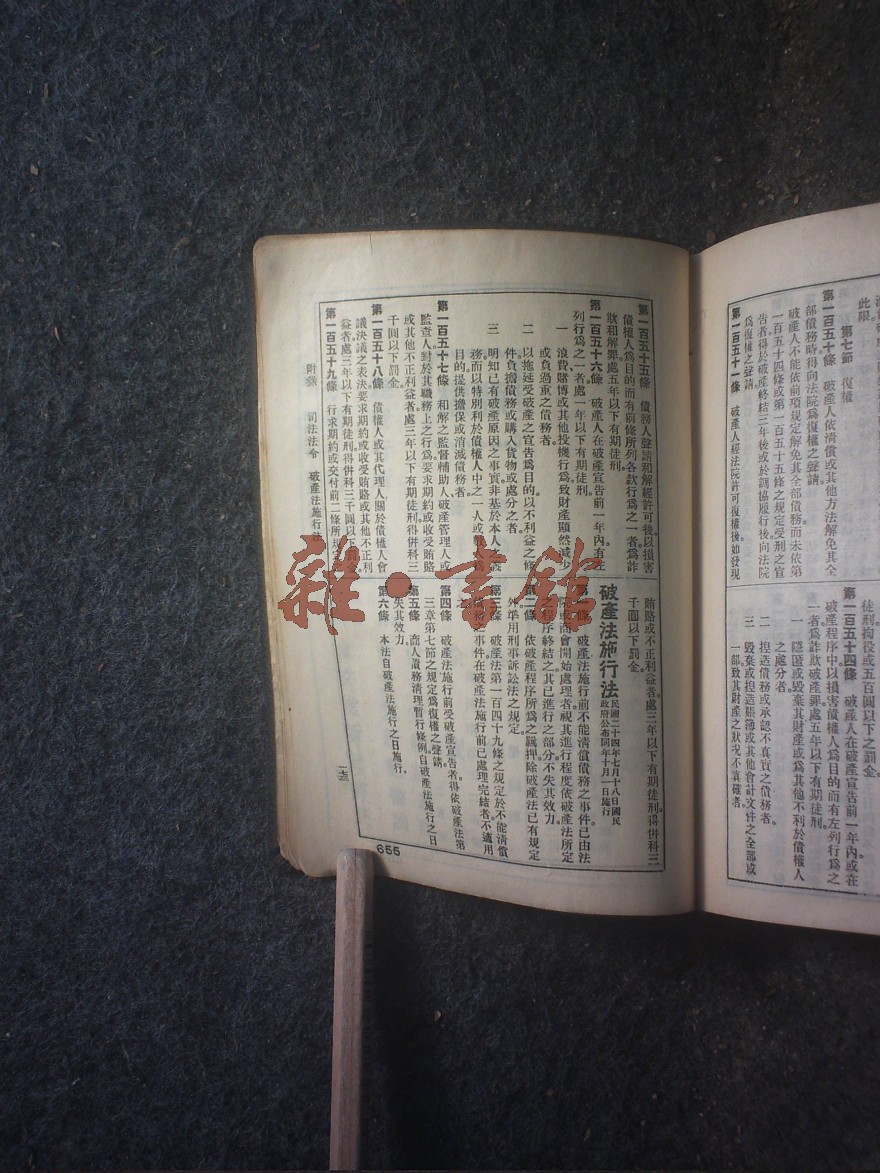 此限。
第七節 復權
第一百五十條 破產人依清償或其他方法解免其全
部債務時得向法院爲復權之聲請。
破產人不能依前項規定解免其全部債務而未依第
一百五十四條或第一百五十五條之規定受刑之宣
告者得於破產終結三年後或於調協履行後向法院
爲復權之聲請。
第一百五十一條 破產人經法院許可復權後如發現
徒刑拘役或五百圓以下之罰金。
第一百五十四條 破產人在破產宣告前一年內或在
破產程序中以損害債權人爲目的而有左列行爲之
一者爲詐欺破產罪處五年以下有期徒刑。
一 隱匿或毀棄其財產或爲其他不利於債權人
之處分者
二 捏造債務或承認不真實之債務者。
三 毀棄或捏造賬簿或其他會計文件之全部或
一部致其財產之狀況不真確者。
第一百五十五條 債務人聲請和解經許可後以損害
債權人爲目的而有前條所列各款行爲之一者爲詐
欺和解罪處五年以下有期徒刑。
第一百五十六條 破產人在破產宣告前一年內有左
列行爲之一者處一年以下有期徒刑。
一 浪費賭博或其他投機行爲致財產顯然減少
或負過重之債務者。
二 以拖延受破產之宣告爲目的以不利益之條
件負擔債務或購入貨物或處分之者
三 明知已有破產原因之事實非基於本人之義
務而以特別利於債權人中之一人或數人爲
目的提供擔保或消滅債務者。
第一百五十七條 和解之監督輔助人破產管理人或
監查人對於其職務上之行爲要求期約或收受賄賂
或其他不正利益者處三年以下有期徒刑得併科三
千圓以下罰金。
第一百五十八條 債權人或其代理人關於債權人會
議決議之表決要求期約或收受賄賂或其他不正利
益者處三年以下有期徒刑得併科三千圓以下罰金。
第一百五十九條 行求期約或交付前二條所規定之
賄賂或不正利益者處三年以下有期徒刑得併科三
千圓以下罰金。
破產法施行法 民國二十四年七月十八日國民
政府公布同年十月一日施行
第一條 破產法施行前不能清償債務之事件已由法
院或商會開始處理者視其進行程度依破產法所定
之程序終結之其已進行之部分不失其效力。
第二條 依破產程序所爲之羈押除破產法已有規定
外準用刑事訴訟法之規定。
第三條 破產法第一百四十九條之規定於不能清償
債務之事件在破產法施行前已處理完結者不適用
之。
第四條 破產法施行前受破產宣告者得依破產法第
三章第七節之規定爲復權之聲請。
第五條 商人債務清理暫行條例自破產法施行之日
失其效力。
第六條 本法自破產法施行之日施行。
附錄 司法法令 破產法施行法
一七三
655
雜·書館